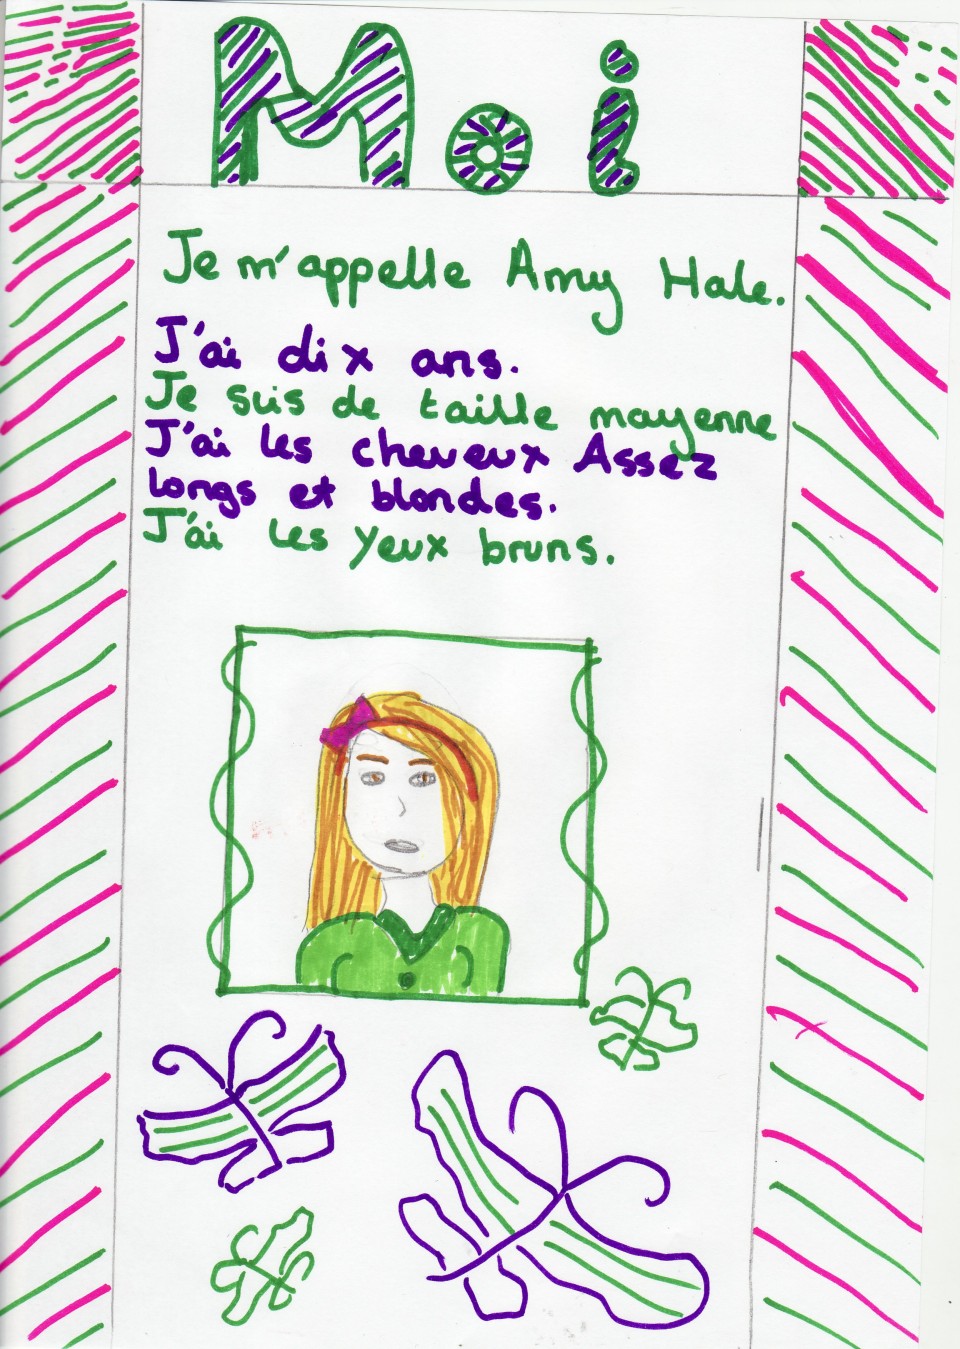 Moi
Je m'appelle Amy Hale.
J'ai dix ans.
Je suis de taille mayenne
J'ai les cheveux Assez
longs et blondes.
J'ai les yeux bruns.